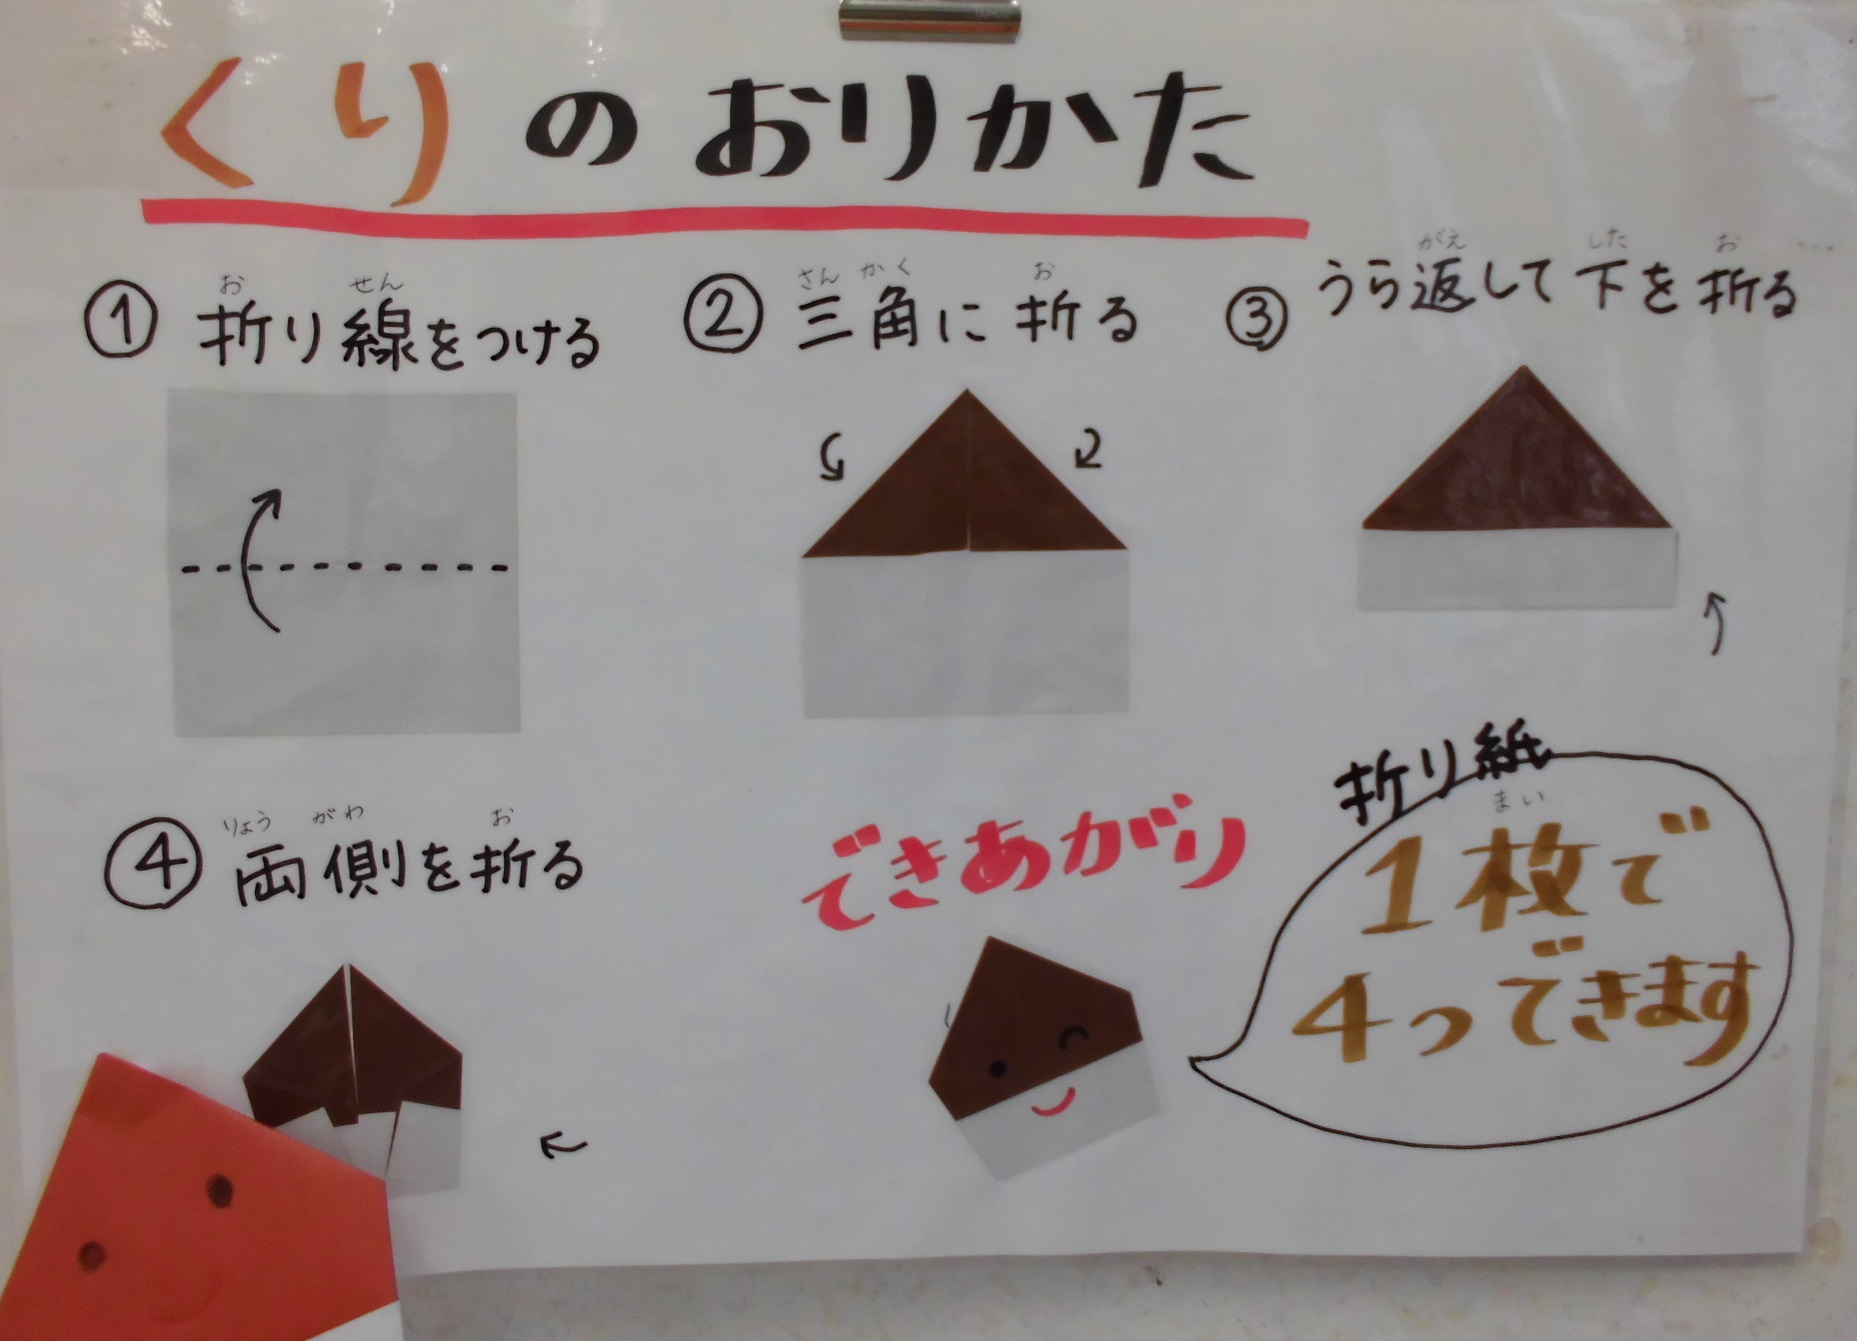 くりのおりかた
① 折り線をつける
お せん
② 三角に折る
さん かく お
③ うら返して下を折る
がえ した お
④ 両側を折る
りょう がわ お
できあがり
折り紙
1枚で
まい
4つできます